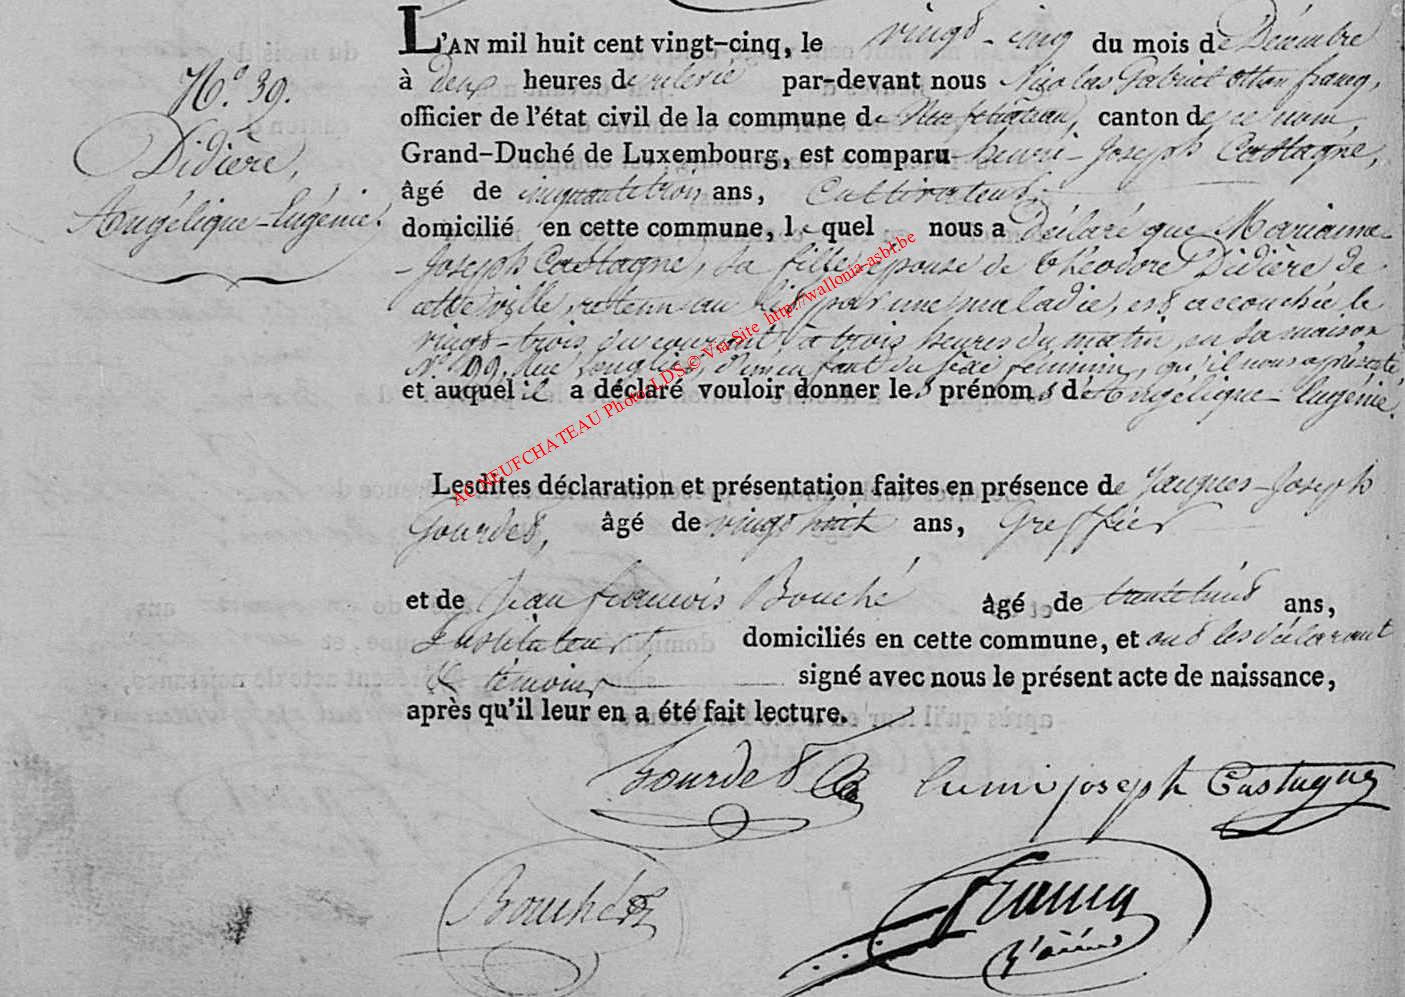 N.° 39.
Didière,
Angélique-Eugénie.
L'AN mil huit cent vingt-cinq, le vingt-cinq du mois de Décembre
à deux heures de relevée par-devant nous Nicolas Gabriel Otton francq,
officier de l'état civil de la commune de Neufchâteau, canton de ce nom,
Grand-Duché de Luxembourg, est comparu henri-Joseph Castagne,
âgé de cinquante trois ans, Cultivateur,
domicilié en cette commune, lequel nous a déclaré que Marianne-
Joseph Castagne, sa fille, épouse de théodore Didière de
cette ville, retenu au lit par une maladie, est accouchée le
vingt-trois du courant, à trois heures du matin, en sa maison
N.° 99, rue, d'un enfant du séxe féminin, qu'il nous a présenté,
et auquel il a déclaré vouloir donner les prénoms d'Angélique-Eugénie.
Lesdites déclaration et présentation faites en présence de Jacques-Joseph
Gourdet, âgé de vingt huit ans, Greffier
et de Jean françois Bouché âgé de trente huit ans,
Instituteur, domiciliés en cette commune, et ont les déclarant
et témoins signé avec nous le présent acte de naissance,
après qu'il leur en a été fait lecture.
Gourdet henri joseph Castagne
Bouché
francq
l'aîné
AC NEUFCHATEAU Photo LDS © Via Site http://wallonia-asbl.be